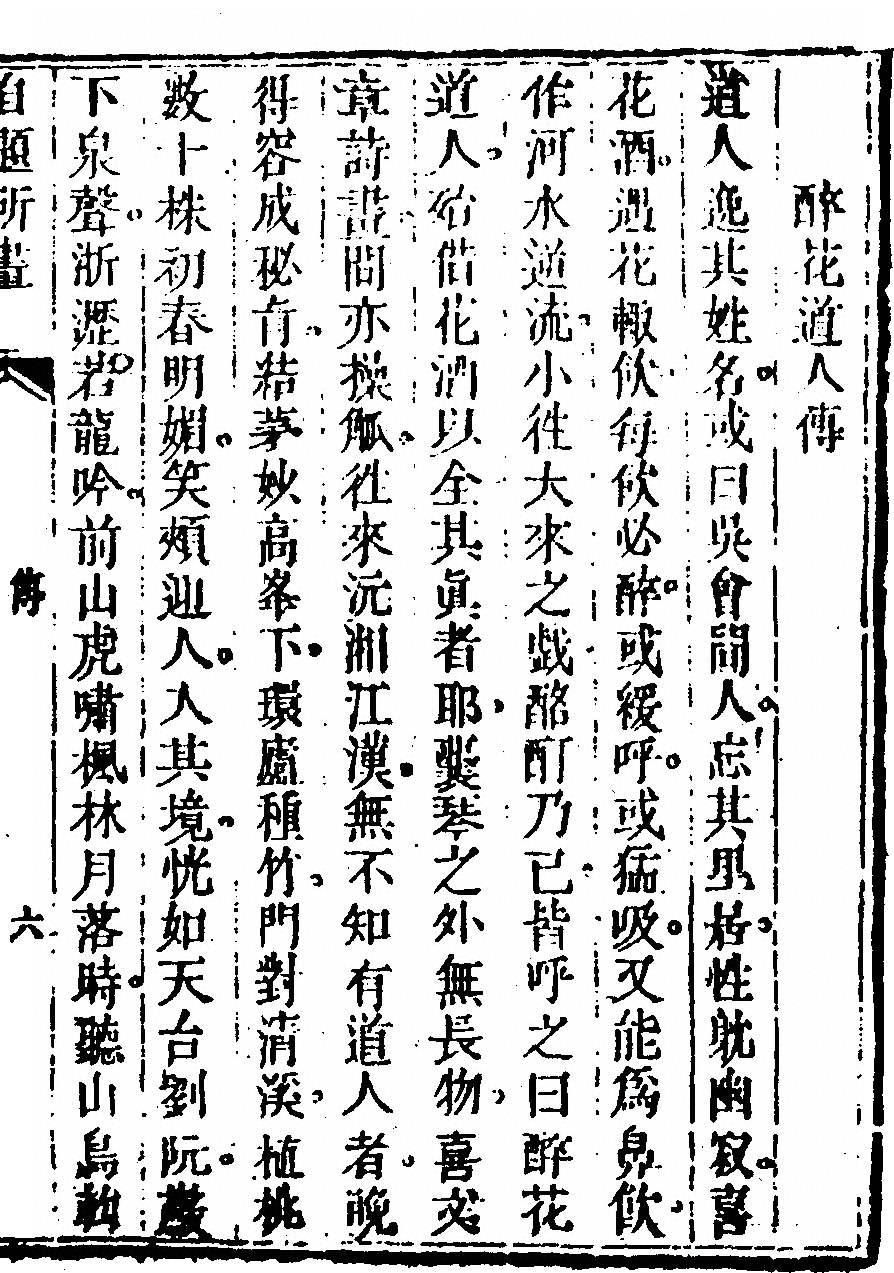 醉花道人傳
道人逸其姓名或曰吳會間人忘其里居性躭幽寂喜
花酒遇花輒飲每飲必醉或緩呼或猛吸又能為鼻飲
作河水逆流小徃大來之戲酩酊乃已皆呼之曰醉花
道人殆借花酒以全其眞者耶襲琴之外無長物喜文
章詩畫間亦操觚徃來沅湘江漢無不知有道人者晚
得容成秘肯結茅妙高峯下環廬種竹門對清溪植桃
數十株初春明媚笑頰迎人人其境恍如天台劉阮巖
下泉聲淅瀝若龍吟前山虎嘯楓林月落時聽山鳥
自題所畫
傳
六